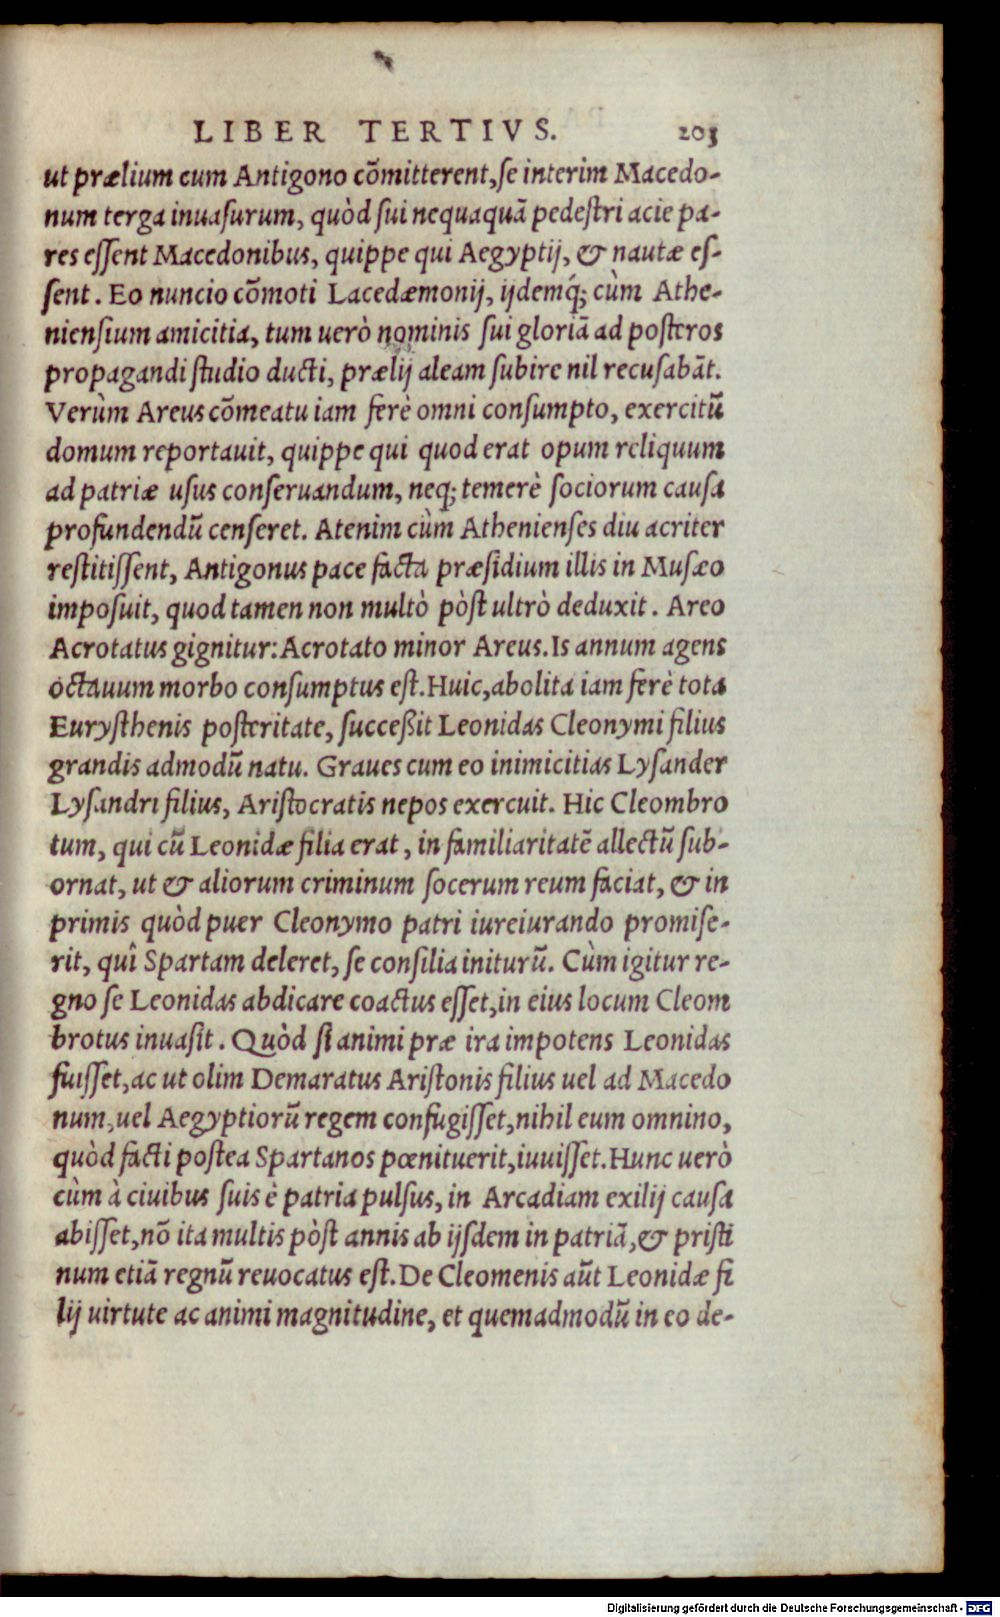 LIBER TERTIVS. 203
ut prælium cum Antigono cõmitterent, se interim Macedo-
num terga inuasurum, quòd sui nequaquã pedestri acie pa-
res essent Macedonibus, quippe qui Aegyptij, & nautæ es-
sent. Eo nuncio cõmoti Lacedæmonij, ijdemq́; cùm Athe-
niensium amicitia, tum uerò nominis sui gloriã ad posteros
propagandi studio ducti, prælij aleam subire nil recusabãt.
Verùm Areus cõmeatu iam ferè omni consumpto, exercitũ
domum reportauit, quippe qui quod erat opum reliquum
ad patriæ usus conseruandum, neq; temerè sociorum causa
profundendũ censeret. Atenim cùm Athenienses diu acriter
restitissent, Antigonus pace facta præsidium illis in Musæo
imposuit, quod tamen non multò pòst ultrò deduxit. Areo
Acrotatus gignitur: Acrotato minor Areus. Is annum agens
octauum morbo consumptus est. Huic, abolita iam ferè tota
Eurysthenis posteritate, succeßit Leonidas Cleonymi filius
grandis admodũ natu. Graues cum eo inimicitias Lysander
Lysandri filius, Aristocratis nepos exercuit. Hic Cleombro
tum, qui cũ Leonidæ filia erat, in familiaritatẽ allectũ sub-
ornat, ut & aliorum criminum socerum reum faciat, & in
primis quòd puer Cleonymo patri iureiurando promise-
rit, quî Spartam deleret, se consilia initurũ. Cùm igitur re-
gno se Leonidas abdicare coactus esset, in eius locum Cleom
brotus inuasit. Quòd si animi præ ira impotens Leonidas
fuisset, ac ut olim Demaratus Aristonis filius uel ad Macedo
num, uel Aegyptiorũ regem confugisset, nihil eum omnino,
quòd facti postea Spartanos pœnituerit, iuuisset. Hunc uerò
cùm à ciuibus suis è patria pulsus, in Arcadiam exilij causa
abisset, nõ ita multis pòst annis ab ijsdem in patriã, & pristi
num etiã regnũ reuocatus est. De Cleomenis aũt Leonidæ fi
lij uirtute ac animi magnitudine, et quemadmodũ in eo de-
Digitalisierung gefördert durch die Deutsche Forschungsgemeinschaft - DFG